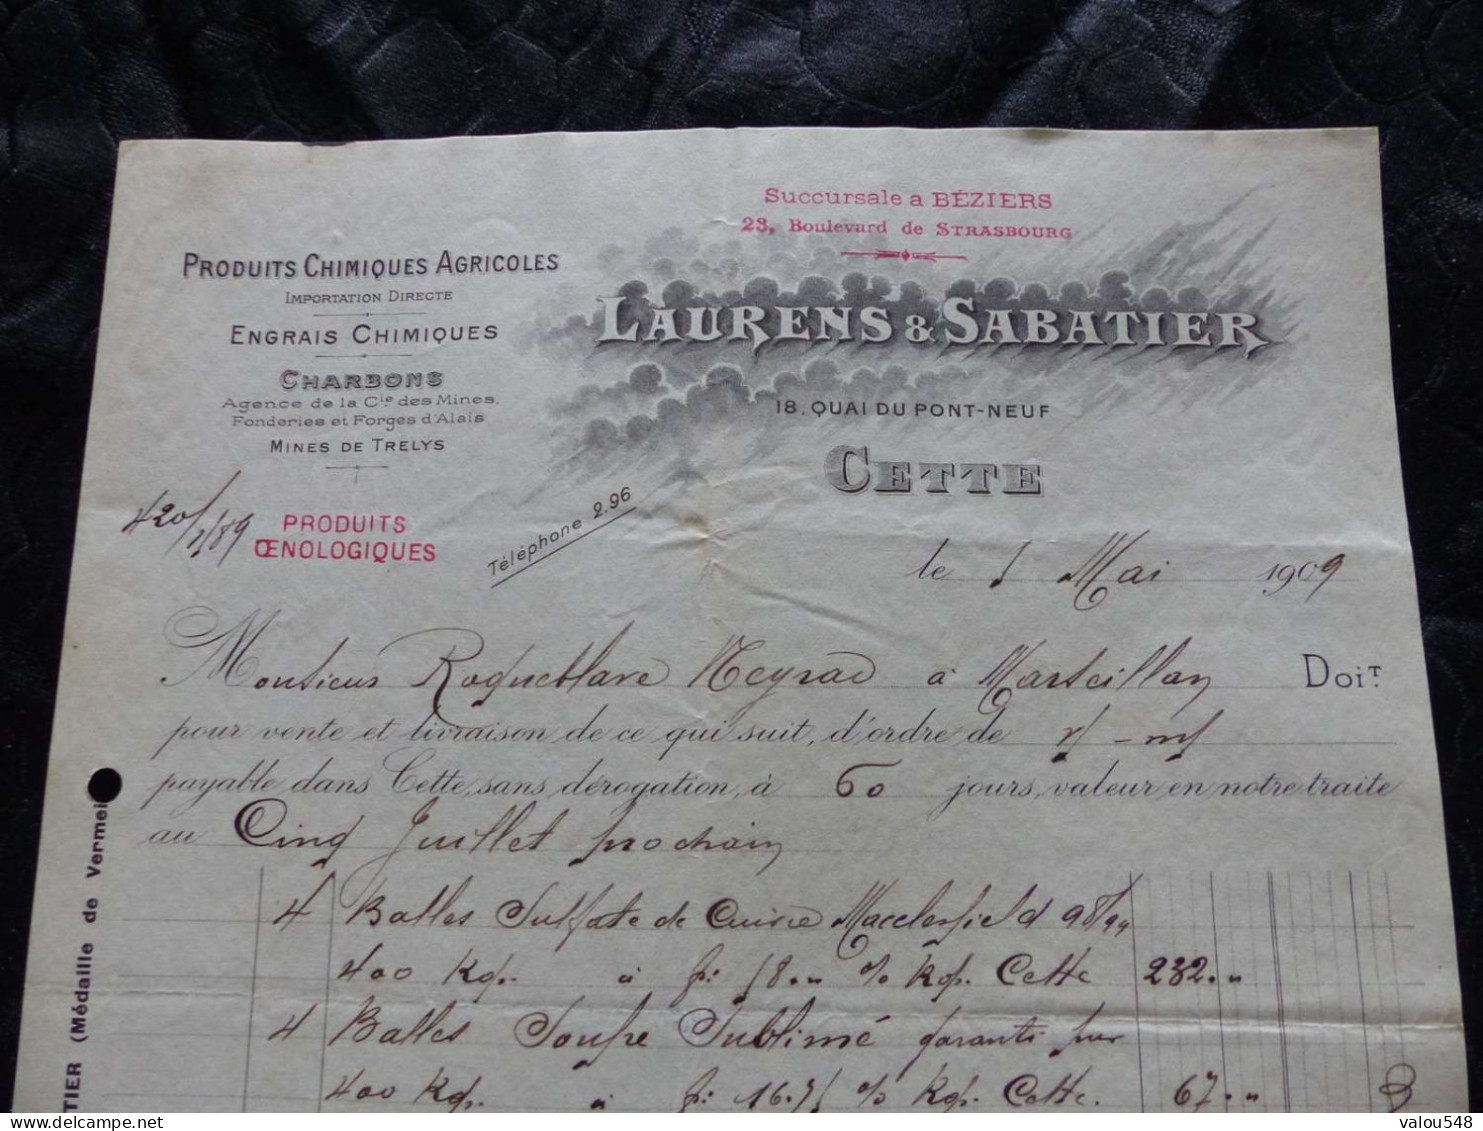 Succursale a BÉZIERS
23, Boulevard de STRASBOURG
PRODUITS CHIMIQUES AGRICOLES
IMPORTATION DIRECTE
ENGRAIS CHIMIQUES
CHARBONS
Agence de la Cie des Mines,
Fonderies et Forges d'Alais
MINES DE TRELYS
LAURENS & SABATIER
18, QUAI DU PONT-NEUF
CETTE
420/
PRODUITS
ŒNOLOGIQUES
Téléphone 2.96
le Mai 1909
Monsieur Roqueblave Meyrac à Marseillan DOIT
pour vente et livraison de ce qui suit, d'ordre de
payable dans Cette, sans dérogation, à 60 jours, valeur en notre traite
au Cinq Juillet prochain
4 Balles Sulfate de Cuivre Macclesfield 98/99
400 Kgs. à fr: 58." % Kgs. Cette 232."
4 Balles Soufre Sublimé garanti pur
400 Kgs. à fr: 16.75 % Kgs. Cette. 67."
TIER (Médaille de Vermei
valou548